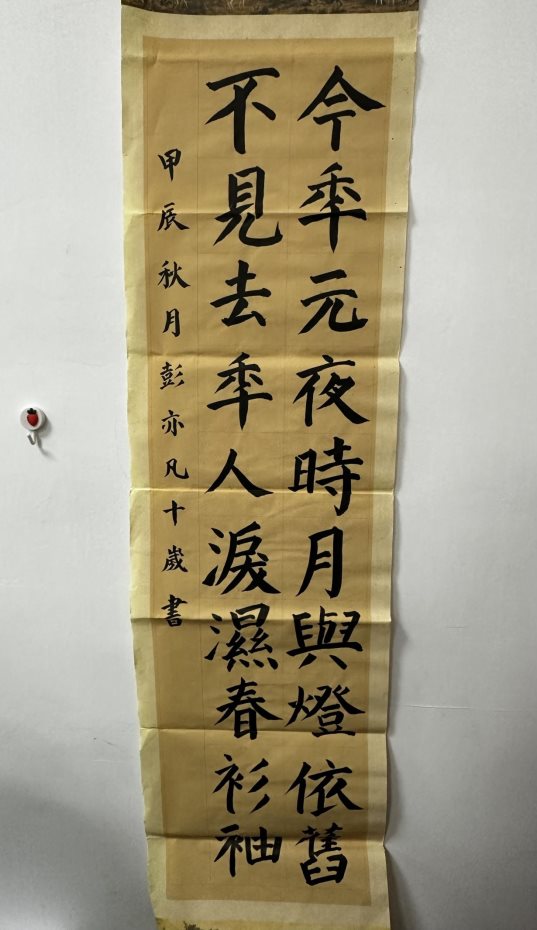 今秊元夜時月與燈依舊
不見去秊人淚濕春衫袖
甲辰秋月彭亦凡十歲書